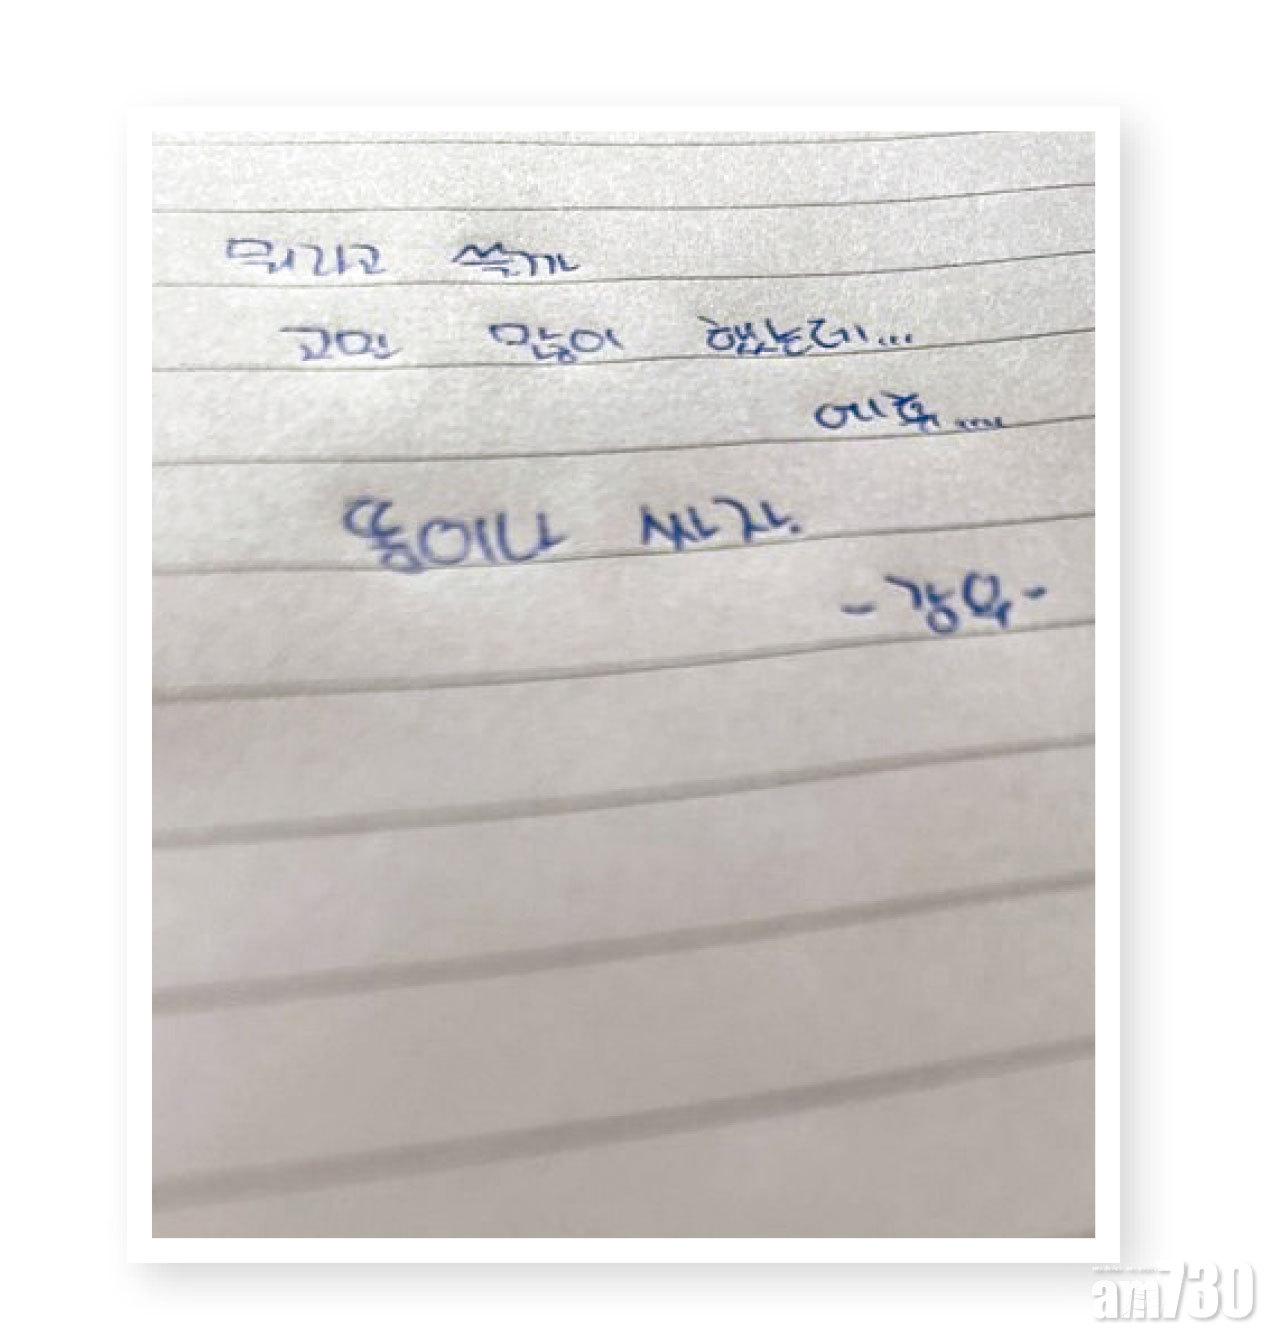 뭐라고 쓸까
고민 많이 했는데...
에휴....
똥이나 싸자.
-강욱-
am730